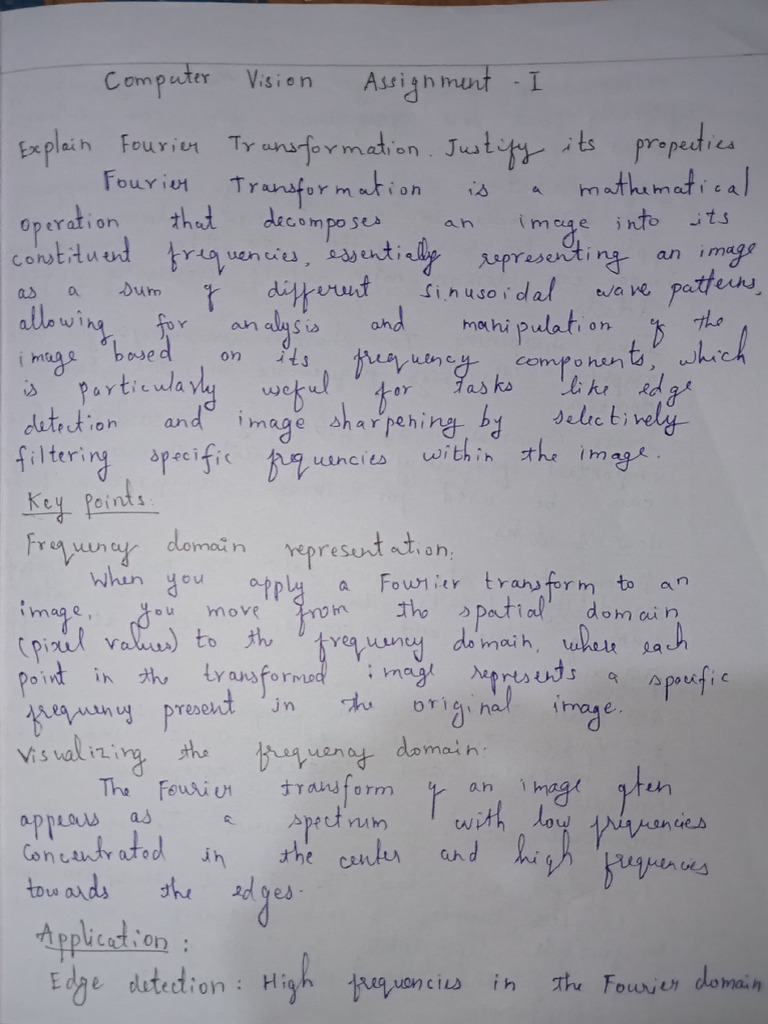 Computer Vision Assignment - I
Explain Fourier Transformation. Justify its properties
Fourier Transformation is a mathematical
operation that decomposes an image into its
constituent frequencies, essentially representing an image
as a sum of different sinusoidal wave patterns,
allowing for analysis and manipulation of the
image based on its frequency components, which
is particularly useful for tasks like edge
detection and image sharpening by selectively
filtering specific frequencies within the image.
Key points:
Frequency domain representation:
When you apply a Fourier transform to an
image, you move from the spatial domain
(pixel values) to the frequency domain, where each
point in the transformed image represents a specific
frequency present in the original image.
Visualizing the frequency domain.
The Fourier transform of an image often
appears as a spectrum with low frequencies
concentrated in the center and high frequencies
towards the edges.
Application:
Edge detection: High frequencies in the Fourier domain